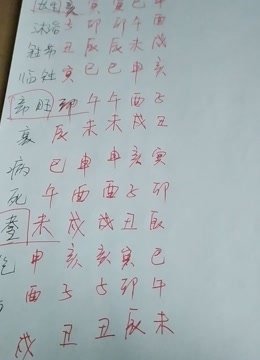 生 亥 寅 寅 巳 申
沐浴 子 卯 卯 午 酉
丑 辰 辰 未 戌
临 寅 巳 巳 申 亥
帝旺 卯 午 午 酉 子
衰 辰 未 未 戌 丑
病 巳 申 申 亥 寅
死 午 酉 酉 子 卯
墓 未 戌 戌 丑 辰
申 亥 亥 寅 巳
酉 子 子 卯 午
戌 丑 丑 辰 未